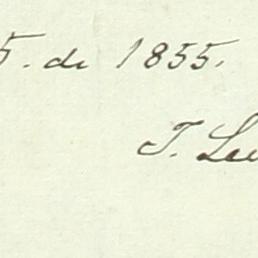 5. de 1855.
J. Lu